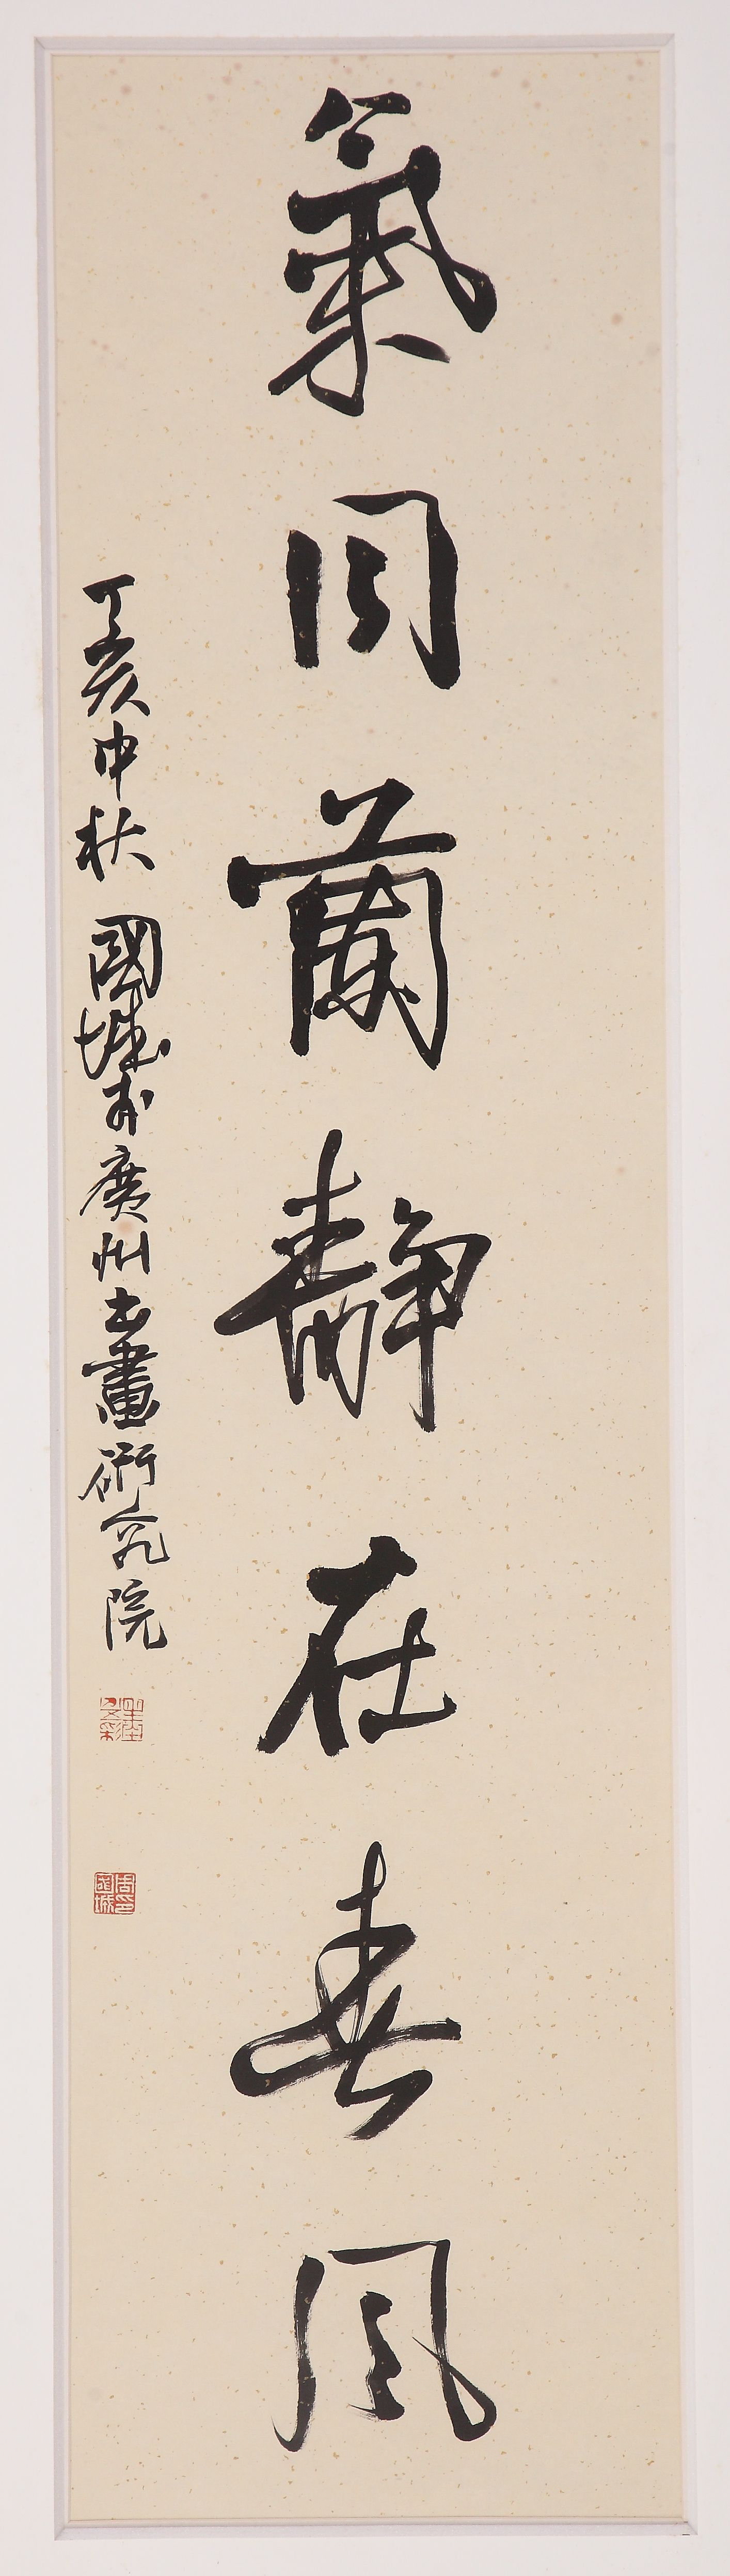 氣同蘭靜在春風
丁亥中秋 國城於廣州書畫研究院
周國城印